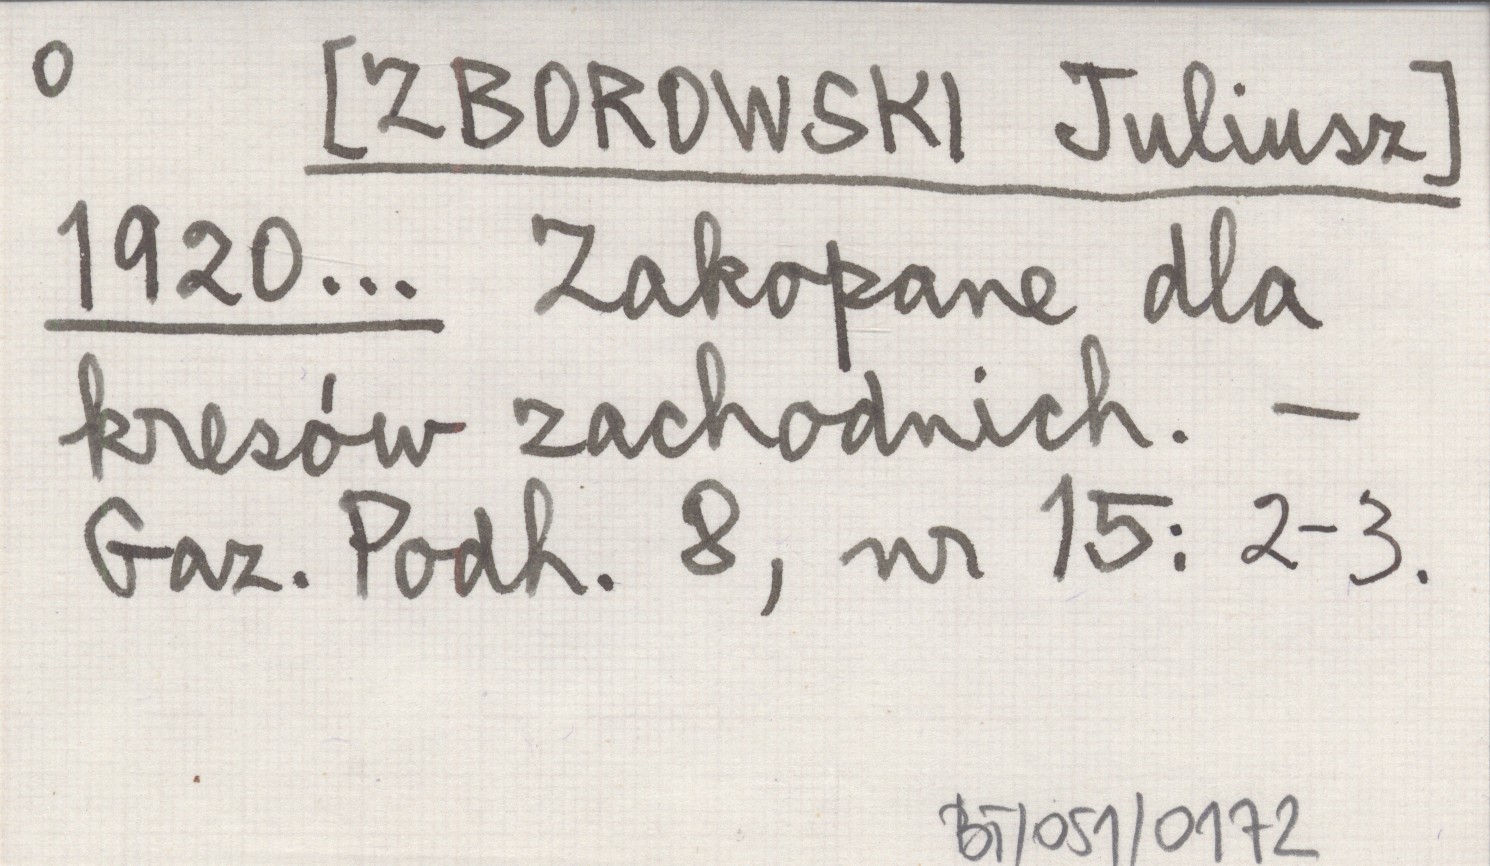 o [ZBOROWSKI Juliusz]
1920... Zakopane dla
kresów zachodnich. —
Gaz. Podh. 8, nr 15: 2-3.
BT/051/0172